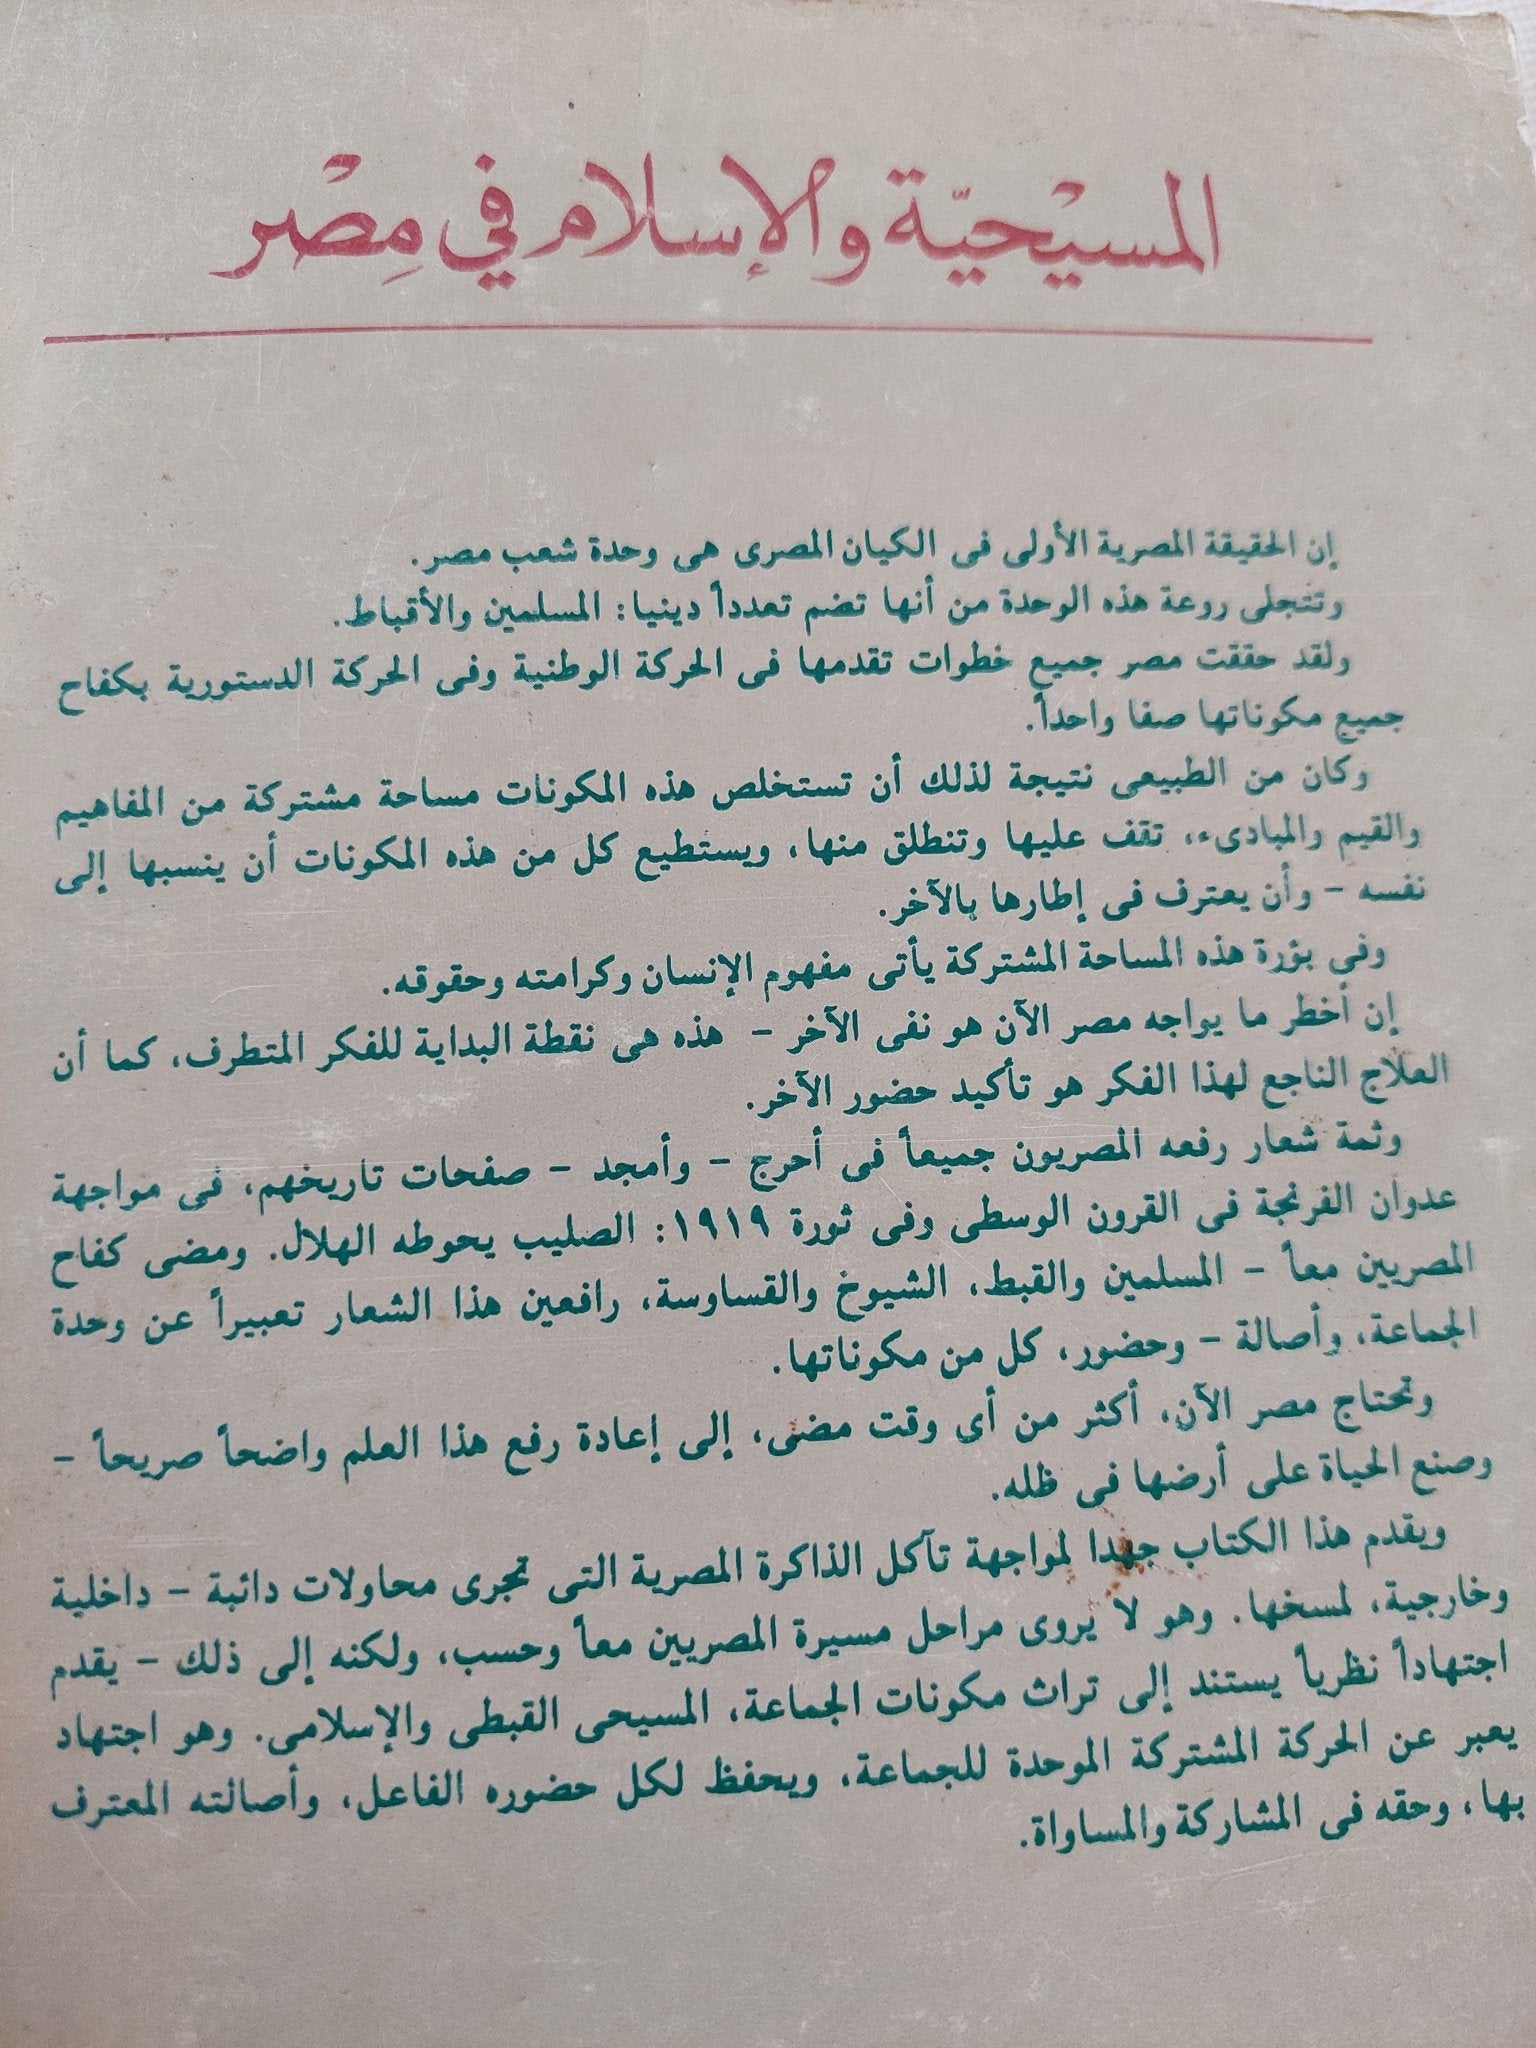 المسيْحيّة والإسلام في مِصْر
إن الحقيقة المصرية الأولى فى الكيان المصرى هى وحدة شعب مصر.
وتتجلى روعة هذه الوحدة من أنها تضم تعدداً دينيا: المسلمين والأقباط.
ولقد حققت مصر جميع خطوات تقدمها فى الحركة الوطنية وفى الحركة الدستورية بكفاح
جميع مكوناتها صفا واحداً.
وكان من الطبيعى نتيجة لذلك أن تستخلص هذه المكونات مساحة مشتركة من المفاهيم
والقيم والمبادىء، تقف عليها وتنطلق منها، ويستطيع كل من هذه المكونات أن ينسبها إلى
نفسه - وأن يعترف فى إطارها بالآخر.
وفى بؤرة هذه المساحة المشتركة يأتى مفهوم الإنسان وكرامته وحقوقه.
إن أخطر ما يواجه مصر الآن هو نفى الآخر - هذه هى نقطة البداية للفكر المتطرف، كما أن
العلاج الناجع لهذا الفكر هو تأكيد حضور الآخر.
وثمة شعار رفعه المصريون جميعاً فى أحرج - وأمجد - صفحات تاريخهم، فى مواجهة
عدوان الفرنجة فى القرون الوسطى وفى ثورة ١٩١٩: الصليب يحوطه الهلال. ومضى كفاح
المصريين معاً - المسلمين والقبط، الشيوخ والقساوسة، رافعين هذا الشعار تعبيراً عن وحدة
الجماعة، وأصالة - وحضور، كل من مكوناتها.
وتحتاج مصر الآن، أكثر من أى وقت مضى، إلى إعادة رفع هذا العلم واضحاً صريحاً -
وصنع الحياة على أرضها فى ظله.
ويقدم هذا الكتاب جهدا لمواجهة تآكل الذاكرة المصرية التى تجرى محاولات دائبة - داخلية
وخارجية، لمسخها. وهو لا يروى مراحل مسيرة المصريين معاً وحسب، ولكنه إلى ذلك - يقدم
اجتهاداً نظرياً يستند إلى تراث مكونات الجماعة، المسيحى القبطى والإسلامى. وهو اجتهاد
يعبر عن الحركة المشتركة الموحدة للجماعة، ويحفظ لكل حضوره الفاعل، وأصالته المعترف
بها، وحقه فى المشاركة والمساواة.